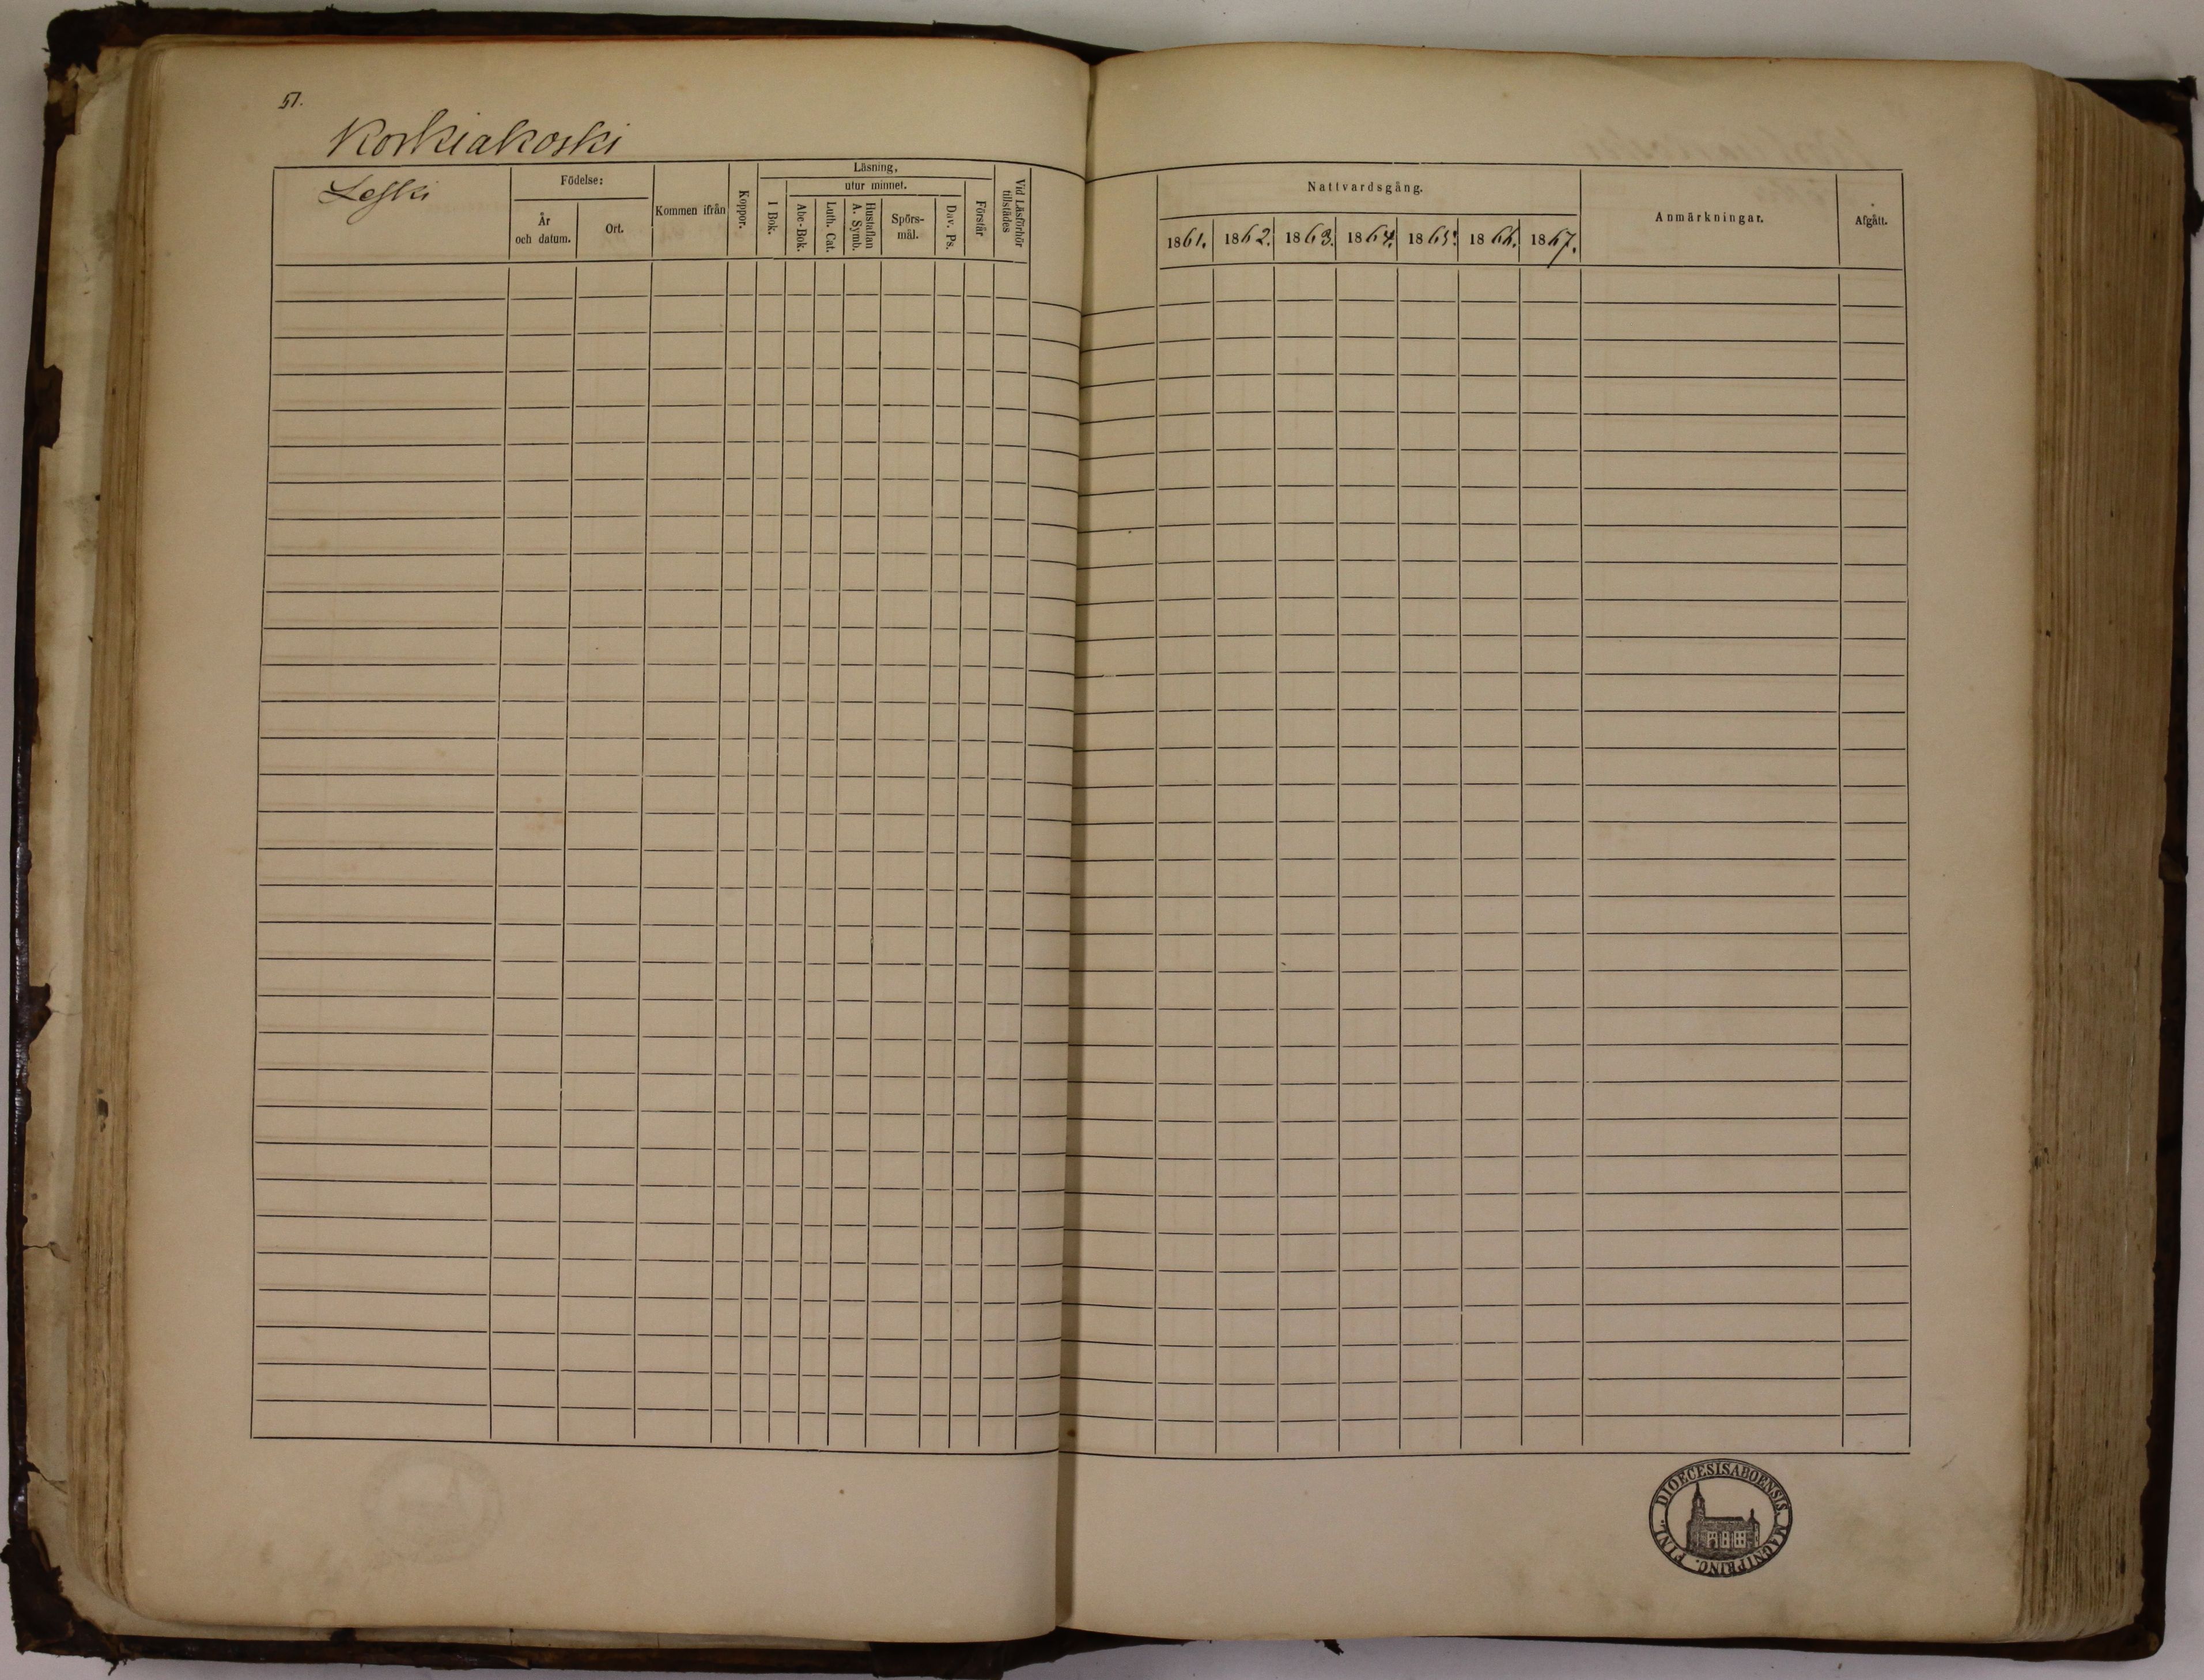 51.
Korkiakoski
Leski
Födelse:
År
och datum.
Ort.
Kommen ifrån
Koppor.
Läsning,
I Bok.
utur minnet.
Abc-Bok.
Luth. Cat.
Hustaflan
A. Symb.
Spörs-
mål.
Dav. Ps.
Förstår
Vid Läsförhör
tillstädes
Nattvardsgång.
1861. 1862. 1863. 1864. 1865. 1866. 1867.
Anmärkningar.
Afgått.
DIOECESIS ABOENSIS. MAGNI PRINC. FINL.